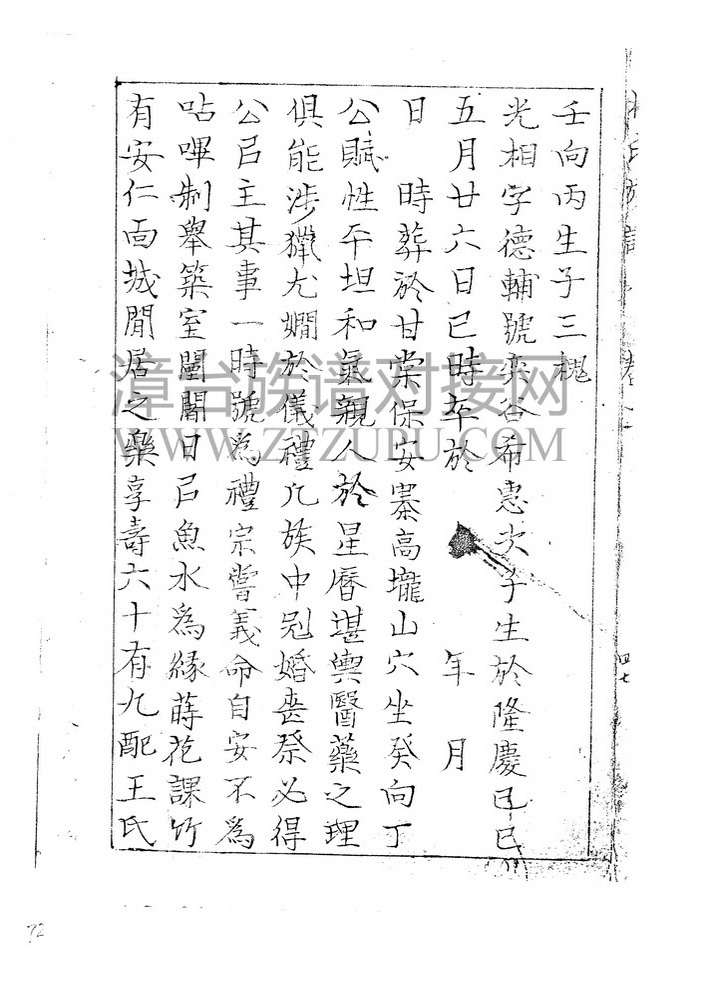 壬向丙生子三槐
光相字德輔號奕谷希惠次子生於隆慶己巳
五月廿六日巳時卒於 年 月
日 時葬於甘棠保安寨高壠山穴坐癸向丁
公賦性平坦和氣親人於星曆堪輿醫藥之理
俱能涉獵尤嫺於儀禮凡族中冠婚喪祭必得
公㠯主其事一時號為禮宗嘗義命自安不為
呫嗶制舉築室闤闠日㠯魚水為緣蒔花課竹
有安仁面城閒居之樂享壽六十有九配王氏
四七
漳台族谱对接网
WWW.ZTZUPU.COM
72